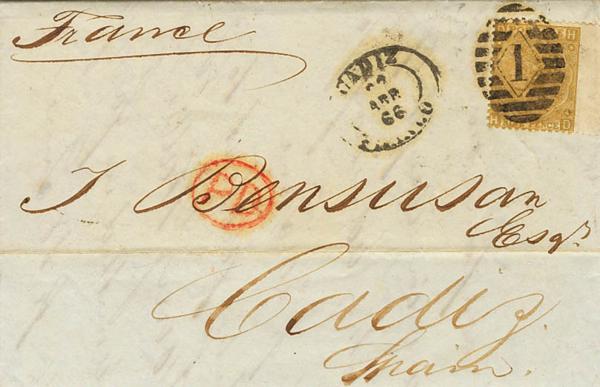 France
CADIZ
APR
66
1
H
H D
PD
J Bensusan
Esqr
Cadiz.
Spain.